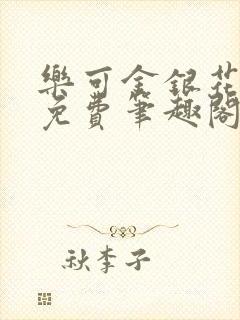 樂可金銀花
免費筆趣閣
秋李子